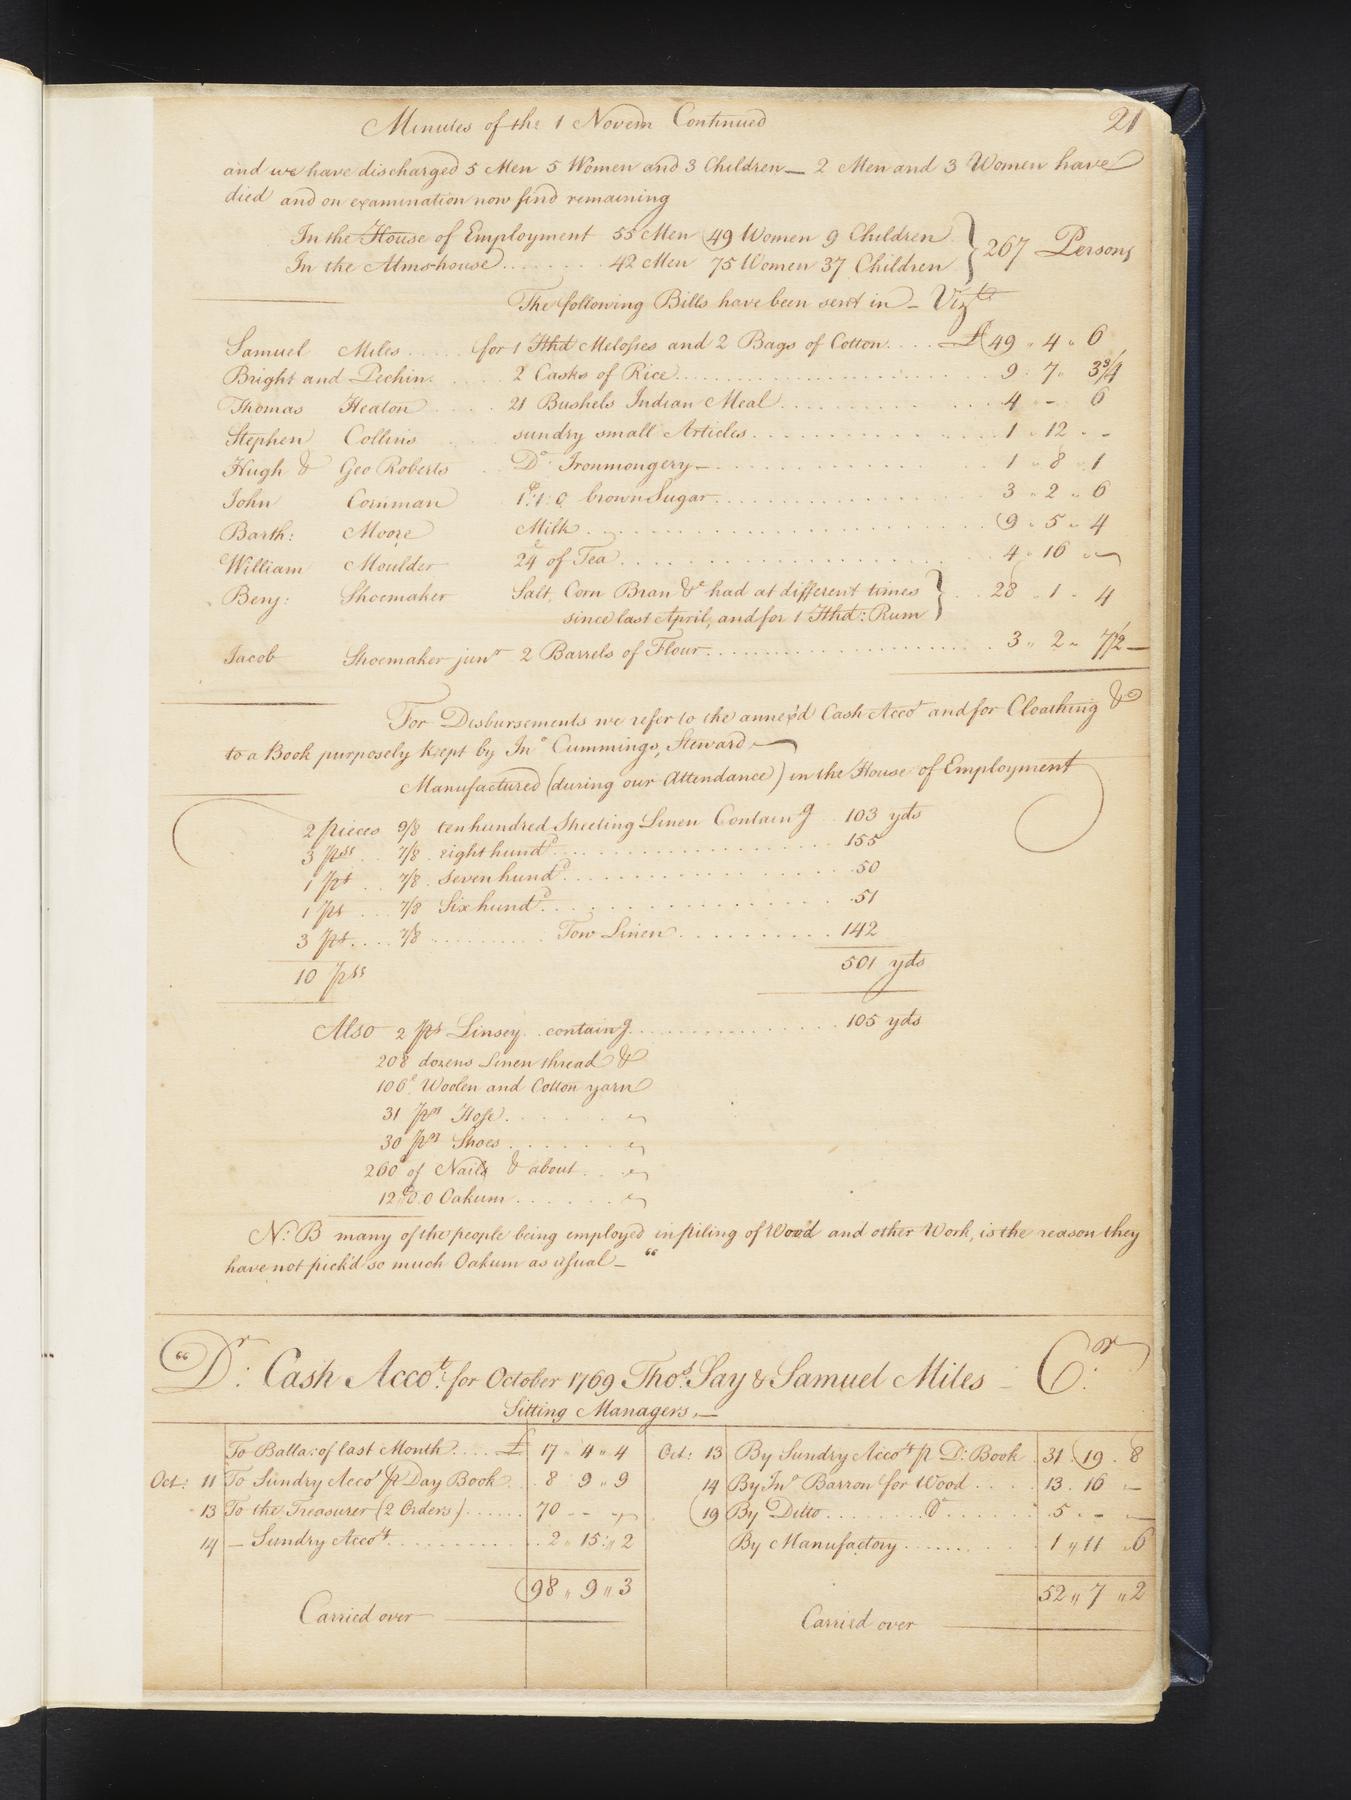 21
Minutes of the 1 Novem Continued
and we have discharged 5 Men 5 Women and 3 Children — 2 Men and 3 Women have
died and on examination now find remaining
In the House of Employment 55 Men 49 Women 9 Children } 267 Persons
In the Almshouse ........ 42 Men 75 Women 37 Children
The following Bills have been sent in — Vizt
Samuel Miles ..... for 1 Hhd Melosses and 2 Bags of Cotton .... £ 49 " 4 " 6
Bright and Pechin ..... 2 Casks of Rice ..... 9 : 7 " 3 3/4
Thomas Heaton ..... 21 Bushels Indian Meal ..... 4 - " 6
Stephen Collins ..... sundry small Articles ..... 1 " 12 " -
Hugh & Geo Roberts .. Do Ironmongery — ..... 1 " 8 " 1
John Corniman 1C:1:0 brown Sugar ..... 3 " 2 " 6
Barth: Moore Milk ..... 9 " 5 " 4
William Moulder 24 lb of Tea ..... 4 " 16 " —
Benj: Shoemaker Salt, Corn Bran &c had at different times } .. 28 " 1 " 4
since last April, and for 1 Hhd: Rum
Jacob Shoemaker junr 2 Barrels of Flour ..... 3 " 2 " 7 1/2 —
For Disbursements we refer to the annex'd Cash Accot and for Cloathing &
to a Book purposely Keept by Jno Cummings, Steward —
Manufactured (during our Attendance) in the House of Employment
2 pieces 9/8 ten hundred Sheeting Linen Containg .. 103 yds
3 pss .. 7/8 . eight hundd ..... 155
1 ps .. 7/8 . Seven hundd ..... 50
1 ps .... 7/8 Six hundd ..... 51
3 ps .... 7/8 .......... Tow Linen ..... 142
10 pss 501 yds
Also 2 ps Linsey .. containg ..... 105 yds
208 dozens Linen thread &
106 lb Woolen and Cotton yarn
31 prs Hose ..... "
30 prs Shoes ..... "
260 lb of Nails & about ... "
12C.0.0 Oakum ..... "
N:B many of the people being employed in piling of Wood and other Work, is the reason they
have not pick'd so much Oakum as usual — "
" Dr: Cash Accot: for October 1769 Thos. Say & Samuel Miles — Cr:
Sitting Managers, —
To Balla: of last Month .... £ 17 " 4 " 4
Oct: 11 To Sundry Accots pr Day Book .. 8 " 9 " 9
13 To the Treasurer (2 Orders) ...... 70 - - —
14 — Sundry Accots ..... 2 " 15 " 2
98 " 9 " 3
Carried over
Oct: 13 By Sundry Accots pr D: Book . 31 " 19 . 8
14 By Jno Barron for Wood .... 13 . 16 " —
19 By Ditto ........ Do ...... 5 . - —
By Manufactory ........ 1 " 11 " 6
52 " 7 " 2
Carried over